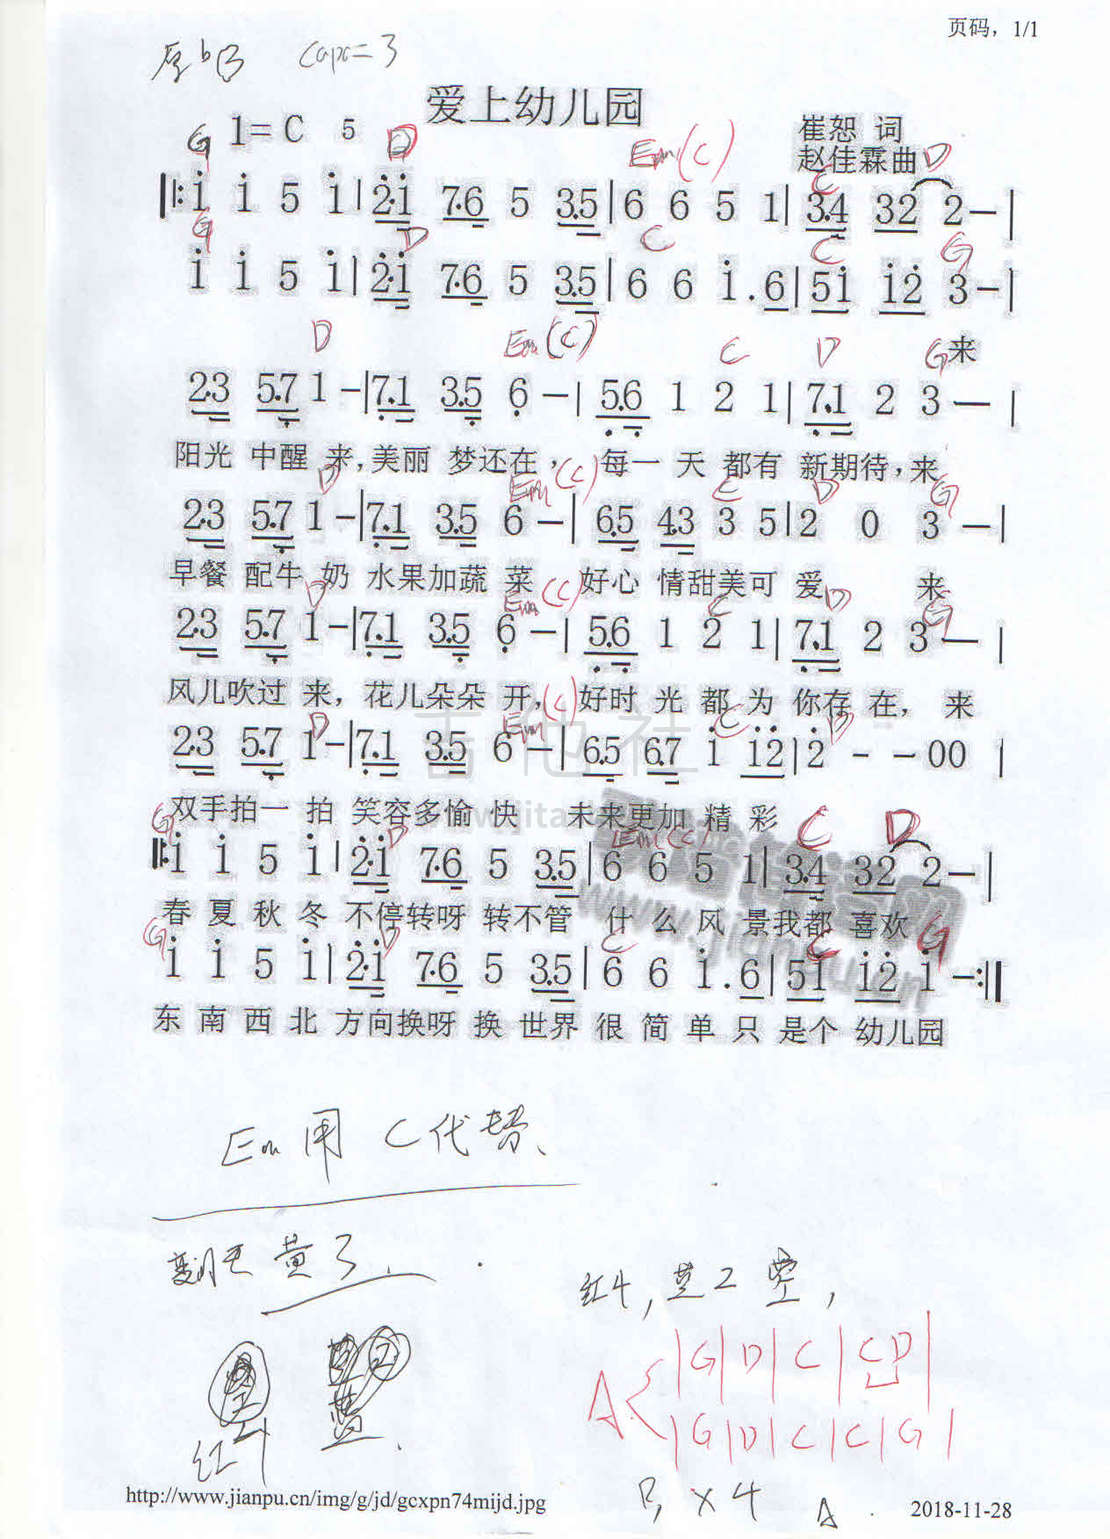 页码，1/1
原bB Capo=3
爱上幼儿园
1=C 5
崔恕 词
赵佳霖曲
G D Em(C) C D
|: i i 5 i | 2·i 7·6 5 3·5 | 6 6 5 1 | 3·4 32 2 — |
G D C C G
i i 5 i | 2·i 7·6 5 3·5 | 6 6 i . 6 | 5i i2 3 — |
D Em(C) C D G 来
2·3 5·7 1 — | 7·1 3·5 6 — | 5·6 1 2 1 | 7·1 2 3 — |
阳光 中醒 来，美丽 梦还在， 每一 天 都有 新期待，来
D Em(C) C D G
2·3 5·7 1 — | 7·1 3·5 6 — | 6·5 4·3 3 5 | 2 0 3 — |
早餐 配牛 奶 水果加蔬 菜 好心 情甜美可 爱 来
D Em(C) C D G
2·3 5·7 1 — | 7·1 3·5 6 — | 5·6 1 2 1 | 7·1 2 3 — |
风儿吹过 来，花儿朵朵 开，好时 光 都 为 你存 在， 来
D Em(C) C D
2·3 5·7 1 — | 7·1 3·5 6 — | 6·5 6·7 i i2 | 2 - - 00 |
吉他社
双手拍一 拍 笑容多愉 快 未来更加 精 彩
G D Em(C) C D
|: i i 5 i | 2·i 7·6 5 3·5 | 6 6 5 1 | 3·4 32 2 — |
春 夏 秋 冬 不停转呀 转不管 什 么 风 景我都 喜欢
G D C C G
i i 5 i | 2·i 7·6 5 3·5 | 6 6 i . 6 | 5i i2 i — :|
东 南 西 北 方向换呀 换 世界 很 简 单 只 是个 幼儿园
Em用 C代替、
黄3
红4，蓝2 空，
|G|D|C|CD|
A{
|G|D|C|C|G|
蓝
红4
B, ×4 A
http://www.jianpu.cn/img/g/jd/gcxpn74mijd.jpg
2018-11-28